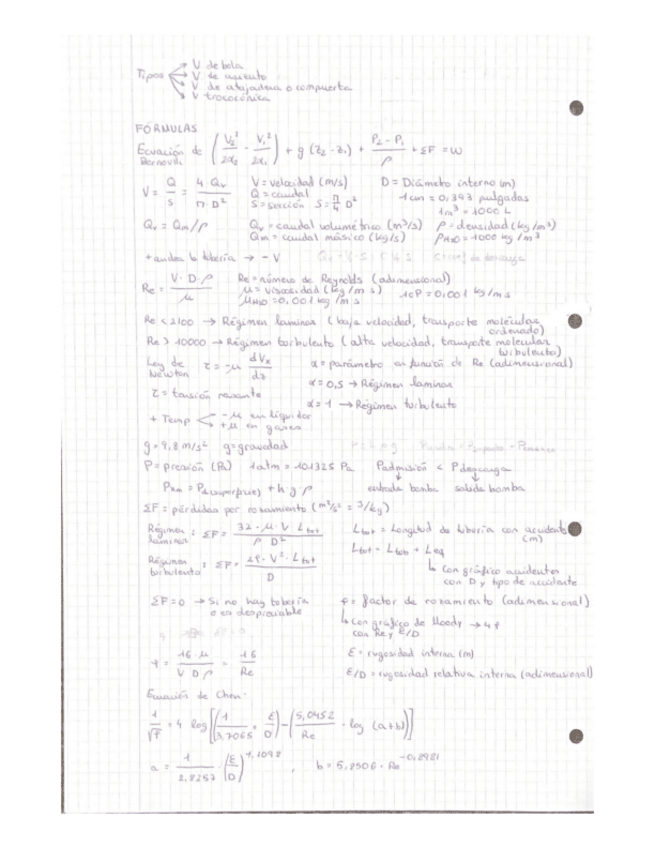 Tipos
V de bola
V de asiento
V de atajadera o compuerta
V troncocónica
FÓRMULAS
Ecuación de Bernoulli (V₂²/2α₂ - V₁²/2α₁) + g (z₂ - z₁) + (P₂ - P₁)/ρ + ΣF = ω
V = Q/S = 4 Qv/π·D² V = velocidad (m/s) D = Diámetro interno (m)
Q = caudal 1cm = 0,393 pulgadas
S = sección S = π/4 D² 1m³ = 1000 L
Qv = Qm/ρ Qv = caudal volumétrico (m³/s) ρ = densidad (kg/m³)
Qm = caudal másico (kg/s) ρH2O = 1000 kg/m³
+ ancha la tubería → - V
Re = V·D·ρ/μ Re = número de Reynolds (adimensional)
μ = viscosidad (kg/m s) 1cP = 0,001 kg/m s
μH2O = 0,001 kg/m s
Re < 2100 → Régimen laminar (baja velocidad, transporte molecular ordenado)
Re > 10000 → Régimen turbulento (alta velocidad, transporte molecular turbulento)
Ley de Newton τ = -μ dVx/dz α = parámetro en función de Re (adimensional)
α = 0,5 → Régimen laminar
τ = tensión rasante α = 1 → Régimen turbulento
+ Temp
- μ en líquidos
+ μ en gases
g = 9,8 m/s² g = gravedad
P = presión (Pa) 1atm = 101325 Pa Padmisión < Pdescarga
+ h·g·ρ entrada bomba salida bomba
ΣF = pérdidas por rozamiento (m²/s² = J/kg)
Régimen laminar : ΣF = 32·μ·V·Ltot/ρ D² Ltot = Longitud de tubería con accidentes (m)
Ltot = Ltub + Leq
Régimen turbulento : ΣF = 2φ·V²·Ltot/D
con gráfico accidentes
con D y tipo de accidente
ΣF = 0 → Si no hay tubería o es despreciable φ = factor de rozamiento (adimensional)
Con gráfico de Moody → 4φ
con Re y ε/D
φ = 16·μ/V D ρ = 16/Re ε = rugosidad interna (m)
ε/D = rugosidad relativa interna (adimensional)
Ecuación de Chen:
1/√f = 4 log [(1/3,7065 · ε/D) - (5,0452/Re · log (a+b))]
a = 1/2,8257 · (ε/D)^1,1098 , b = 5,8506 · Re^-0,8981